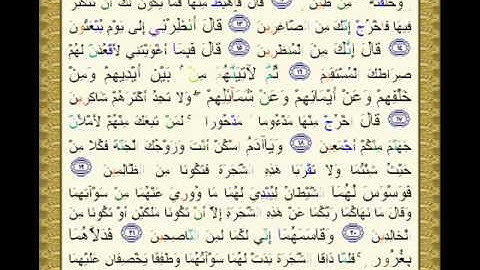 وَخَلَقْتَهُ مِن طِينٍ ﴿١٢﴾ قَالَ فَاهْبِطْ مِنْهَا فَمَا يَكُونُ لَكَ أَن تَتَكَبَّرَ
فِيهَا فَاخْرُجْ إِنَّكَ مِنَ الصَّاغِرِينَ ﴿١٣﴾ قَالَ أَنظِرْنِي إِلَى يَوْمِ يُبْعَثُونَ
﴿١٤﴾ قَالَ إِنَّكَ مِنَ الْمُنظَرِينَ ﴿١٥﴾ قَالَ فَبِمَا أَغْوَيْتَنِي لَأَقْعُدَنَّ لَهُمْ
صِرَاطَكَ الْمُسْتَقِيمَ ﴿١٦﴾ ثُمَّ لَآتِيَنَّهُم مِّن بَيْنِ أَيْدِيهِمْ وَمِنْ
خَلْفِهِمْ وَعَنْ أَيْمَانِهِمْ وَعَن شَمَائِلِهِمْ وَلَا تَجِدُ أَكْثَرَهُمْ شَاكِرِينَ
﴿١٧﴾ قَالَ اخْرُجْ مِنْهَا مَذْءُومًا مَّدْحُورًا لَّمَن تَبِعَكَ مِنْهُمْ لَأَمْلَأَنَّ
جَهَنَّمَ مِنكُمْ أَجْمَعِينَ ﴿١٨﴾ وَيَا آدَمُ اسْكُنْ أَنتَ وَزَوْجُكَ الْجَنَّةَ فَكُلَا مِنْ
حَيْثُ شِئْتُمَا وَلَا تَقْرَبَا هَذِهِ الشَّجَرَةَ فَتَكُونَا مِنَ الظَّالِمِينَ ﴿١٩﴾
فَوَسْوَسَ لَهُمَا الشَّيْطَانُ لِيُبْدِيَ لَهُمَا مَا وُورِيَ عَنْهُمَا مِن سَوْآتِهِمَا
وَقَالَ مَا نَهَاكُمَا رَبُّكُمَا عَنْ هَذِهِ الشَّجَرَةِ إِلَّا أَن تَكُونَا مَلَكَيْنِ أَوْ تَكُونَا مِنَ
الْخَالِدِينَ ﴿٢٠﴾ وَقَاسَمَهُمَا إِنِّي لَكُمَا لَمِنَ النَّاصِحِينَ ﴿٢١﴾ فَدَلَّاهُمَا
بِغُرُورٍ فَلَمَّا ذَاقَا الشَّجَرَةَ بَدَتْ لَهُمَا سَوْآتُهُمَا وَطَفِقَا يَخْصِفَانِ عَلَيْهِمَا